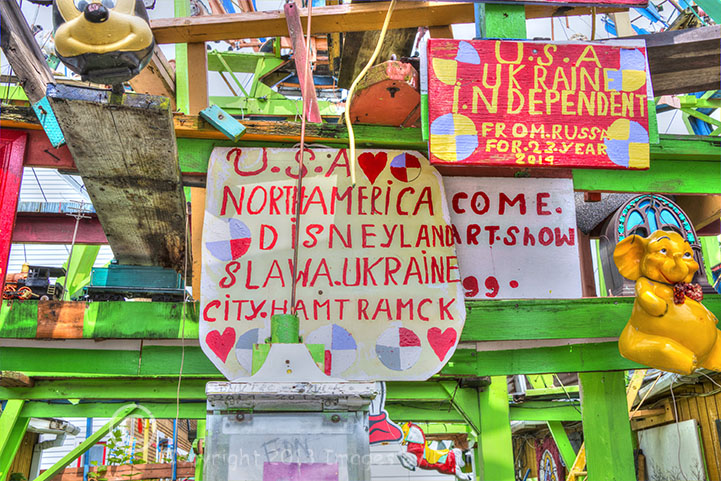 U.S.A
UKRAINE
i.NDEPENDENT
FROM.RUSSA
FOR.23.YEAR
2014
U.S.A
NORTHAMERICA
DISNEYLAND
SLAWA.UKRAINE
CITY.HAMTRAMCK
COME.
ART.SHOW
99.
Copyright 2013 Images